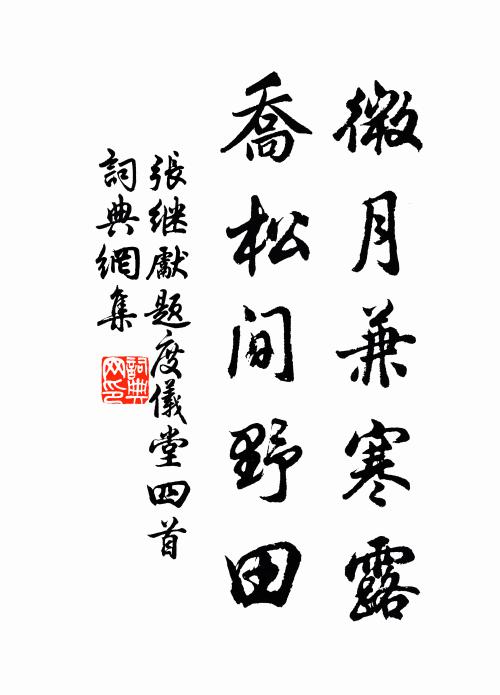 微月兼寒露
喬松间野田
張继獻题度儀堂四首
詞典網集
詞典
网印